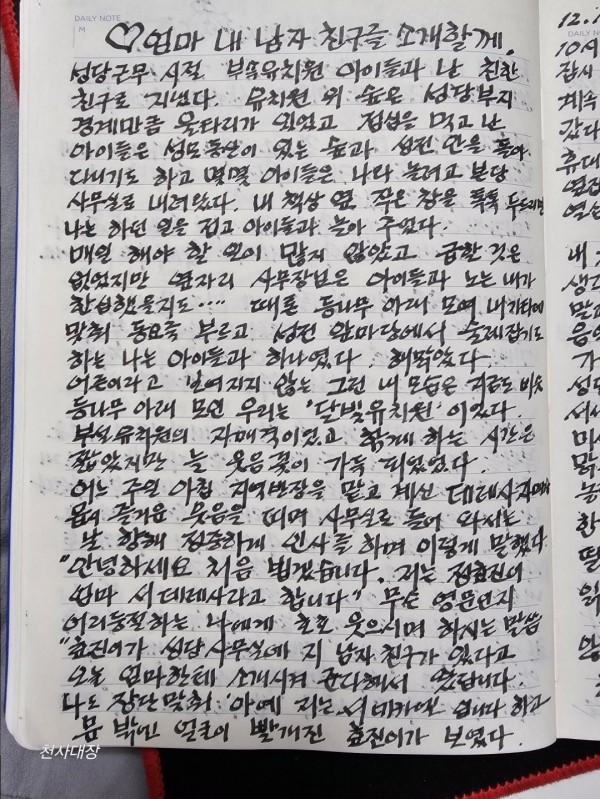 DAILY NOTE
M
♡엄마 내 남자 친구를 소개할께.
성당근무 시절 부속유치원 아이들과 난 친한
친구로 지냈다. 유치원 위 숲은 성당부지
경계만큼 울타리가 있었고 점심을 먹고 난
아이들은 성모동산이 있는 숲과 성전 안을 돌아
다니기도 하고 몇몇 아이들은 나랑 놀려고 본당
사무실로 내려왔다. 내 책상 옆 작은 창을 톡톡 두드리면
나는 하던 일을 접고 아이들과 놀아 주었다.
매일 해야 할 일이 많지 않았고 급한 것은
없었지만 옆자리 사무장님은 아이들과 노는 내가
한심했을지도···· 때론 등나무 아래 모여 내 기타에
맞춰 동요를 부르고 성전 앞마당에서 술래잡기도
하는 나는 아이들과 하나였다. 해맑았다
어른이라고 보여지지 않는 그런 내 모습은 지금도 비슷
등나무 아래 모인 우리는 '달빛유치원' 이었다.
부설유치원의 자매격이었고 함께 하는 시간은
짧았지만 늘 웃음꽃이 가득 피었었다.
어느 주일 아침 지역반장을 맡고 계신 데레사자매님이
몹시 즐거운 웃음을 띠며 사무실로 들어 와서는
날 향해 정중하게 인사를 하며 이렇게 말했다
"안녕하세요 처음 뵙겠습니다. 저는 정효진이
엄마 서데레사라고 합니다" 무슨 영문인지
어리둥절하는 나에게 호호 웃으시며 하시는 말씀
"효진이가 성당사무실에 지 남자친구가 있다고
오늘 엄마한테 소개시켜 준다해서 왔답니다.
나도 장단맞춰 '아예 저는 입니다 하고
문 밖엔 얼굴이 빨개진 효진이가 보였다.
천사대장
12.
DAILY NOTE
잠시
계속
갔다
휴대
내
생각
말과
가
한